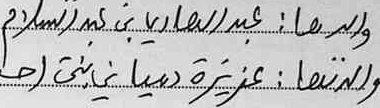 والدها: عبد الصاريا بن عبد السلام
والدتها: عزيزة دسيا ني بنت احـ